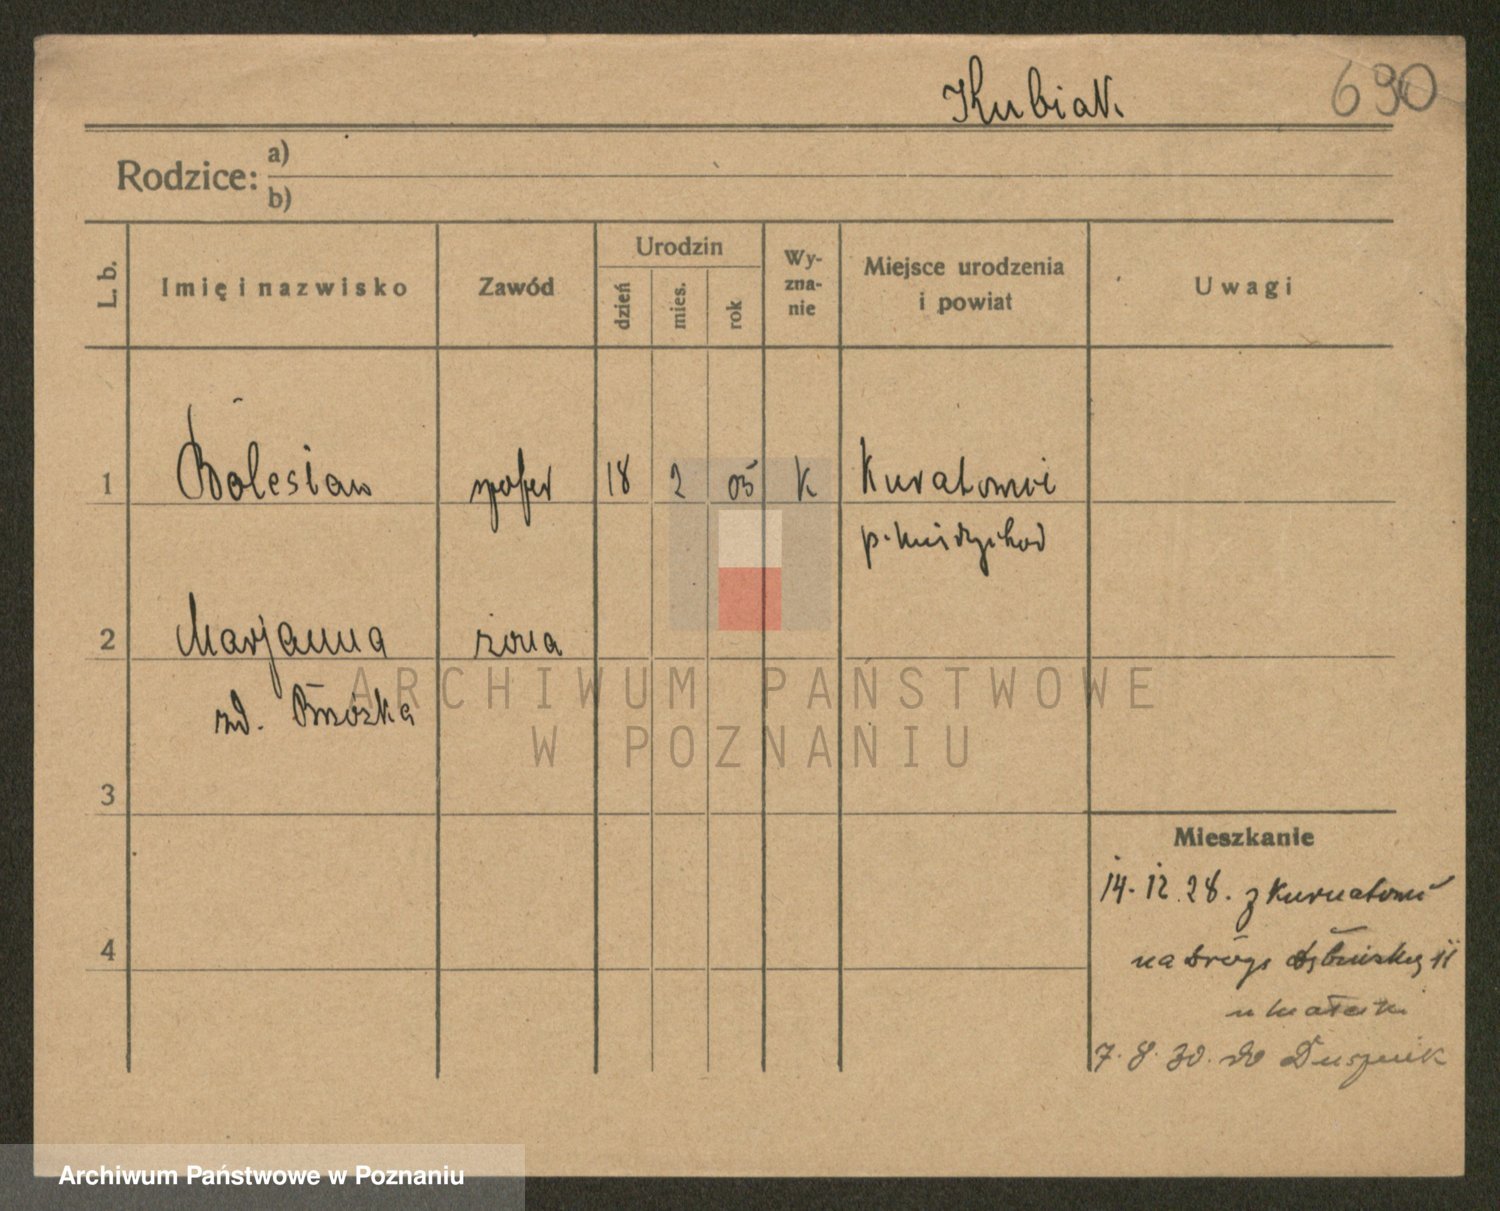 Kubiak.
690
Rodzice: a)
b)
L. b.
Imię i nazwisko
Zawód
Urodzin
dzień
mies.
rok
Wy-
zna-
nie
Miejsce urodzenia
i powiat
Uwagi
1
Bolesław
szofer
18
2
05
K
p. Międzychod
2
Marjanna
żona
zd. Brzózka
3
4
Mieszkanie
14. 12. 28. z
na
7. 8. 30. do Dusznik
ARCHIWUM PAŃSTWOWE
W POZNANIU
Archiwum Państwowe w Poznaniu